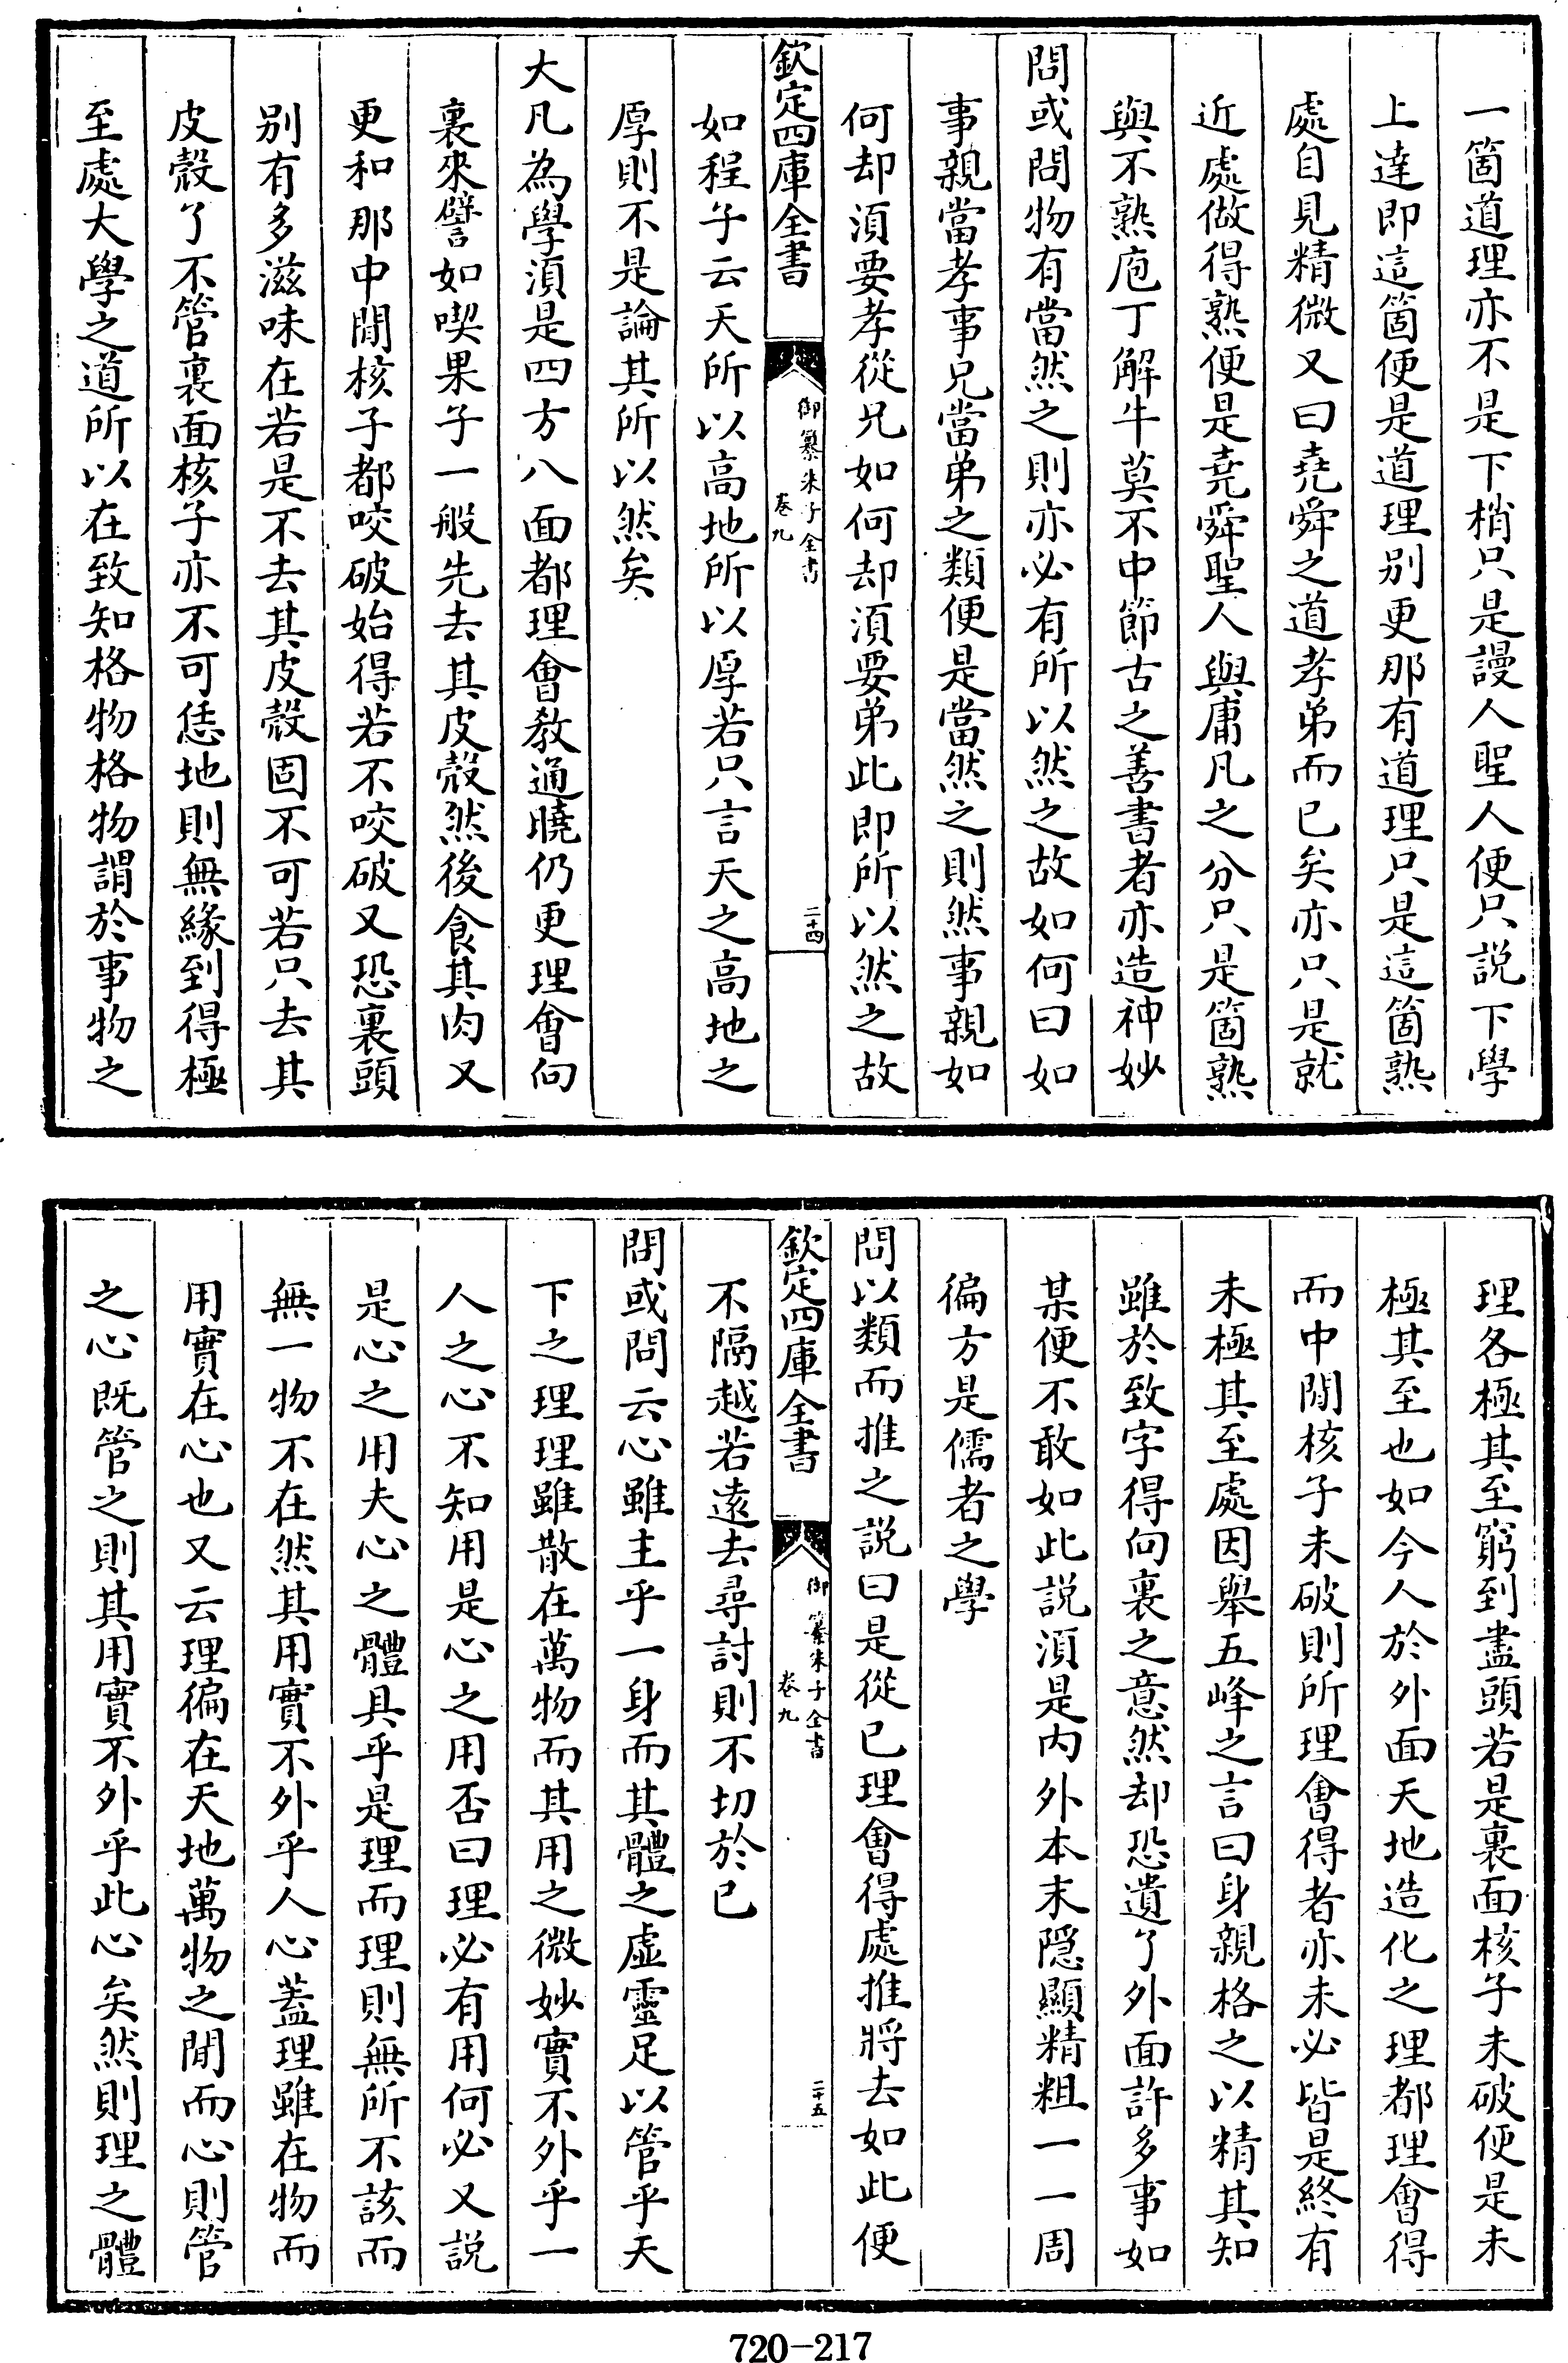 一箇道理亦不是下梢只是謾人聖人便只説下學
上達即這箇便是道理别更那有道理只是這箇熟
處自見精微又曰堯舜之道孝弟而已矣亦只是就
近處做得熟便是堯舜聖人與庸凡之分只是箇熟
與不熟庖丁解牛莫不中節古之善書者亦造神妙
問或問物有當然之則亦必有所以然之故如何曰如
事親當孝事兄當弟之類便是當然之則然事親如
何却須要孝從兄如何却須要弟此即所以然之故
欽定四庫全書
御纂朱子全書
卷九
二十四
如程子云天所以高地所以厚若只言天之高地之
厚則不是論其所以然矣
大凡為學須是四方八面都理會教通曉仍更理會向
裏來譬如喫果子一般先去其皮殼然後食其肉又
更和那中間核子都咬破始得若不咬破又恐裏頭
别有多滋味在若是不去其皮殼固不可若只去其
皮殼了不管裏面核子亦不可恁地則無緣到得極
至處大學之道所以在致知格物格物謂於事物之
理各極其至窮到盡頭若是裏面核子未破便是未
極其至也如今人於外面天地造化之理都理會得
而中間核子未破則所理會得者亦未必皆是終有
未極其至處因舉五峰之言曰身親格之以精其知
雖於致字得向裏之意然却恐遺了外面許多事如
某便不敢如此説須是内外本末隱顯精粗一一周
徧方是儒者之學
問以類而推之説曰是從已理會得處推將去如此便
欽定四庫全書
御纂朱子全書
卷九
二十五
不隔越若遠去尋討則不切於已
問或問云心雖主乎一身而其體之虛靈足以管乎天
下之理理雖散在萬物而其用之微妙實不外乎一
人之心不知用是心之用否曰理必有用何必又説
是心之用夫心之體具乎是理而理則無所不該而
無一物不在然其用實不外乎人心蓋理雖在物而
用實在心也又云理徧在天地萬物之間而心則管
之心既管之則其用實不外乎此心矣然則理之體
720-217